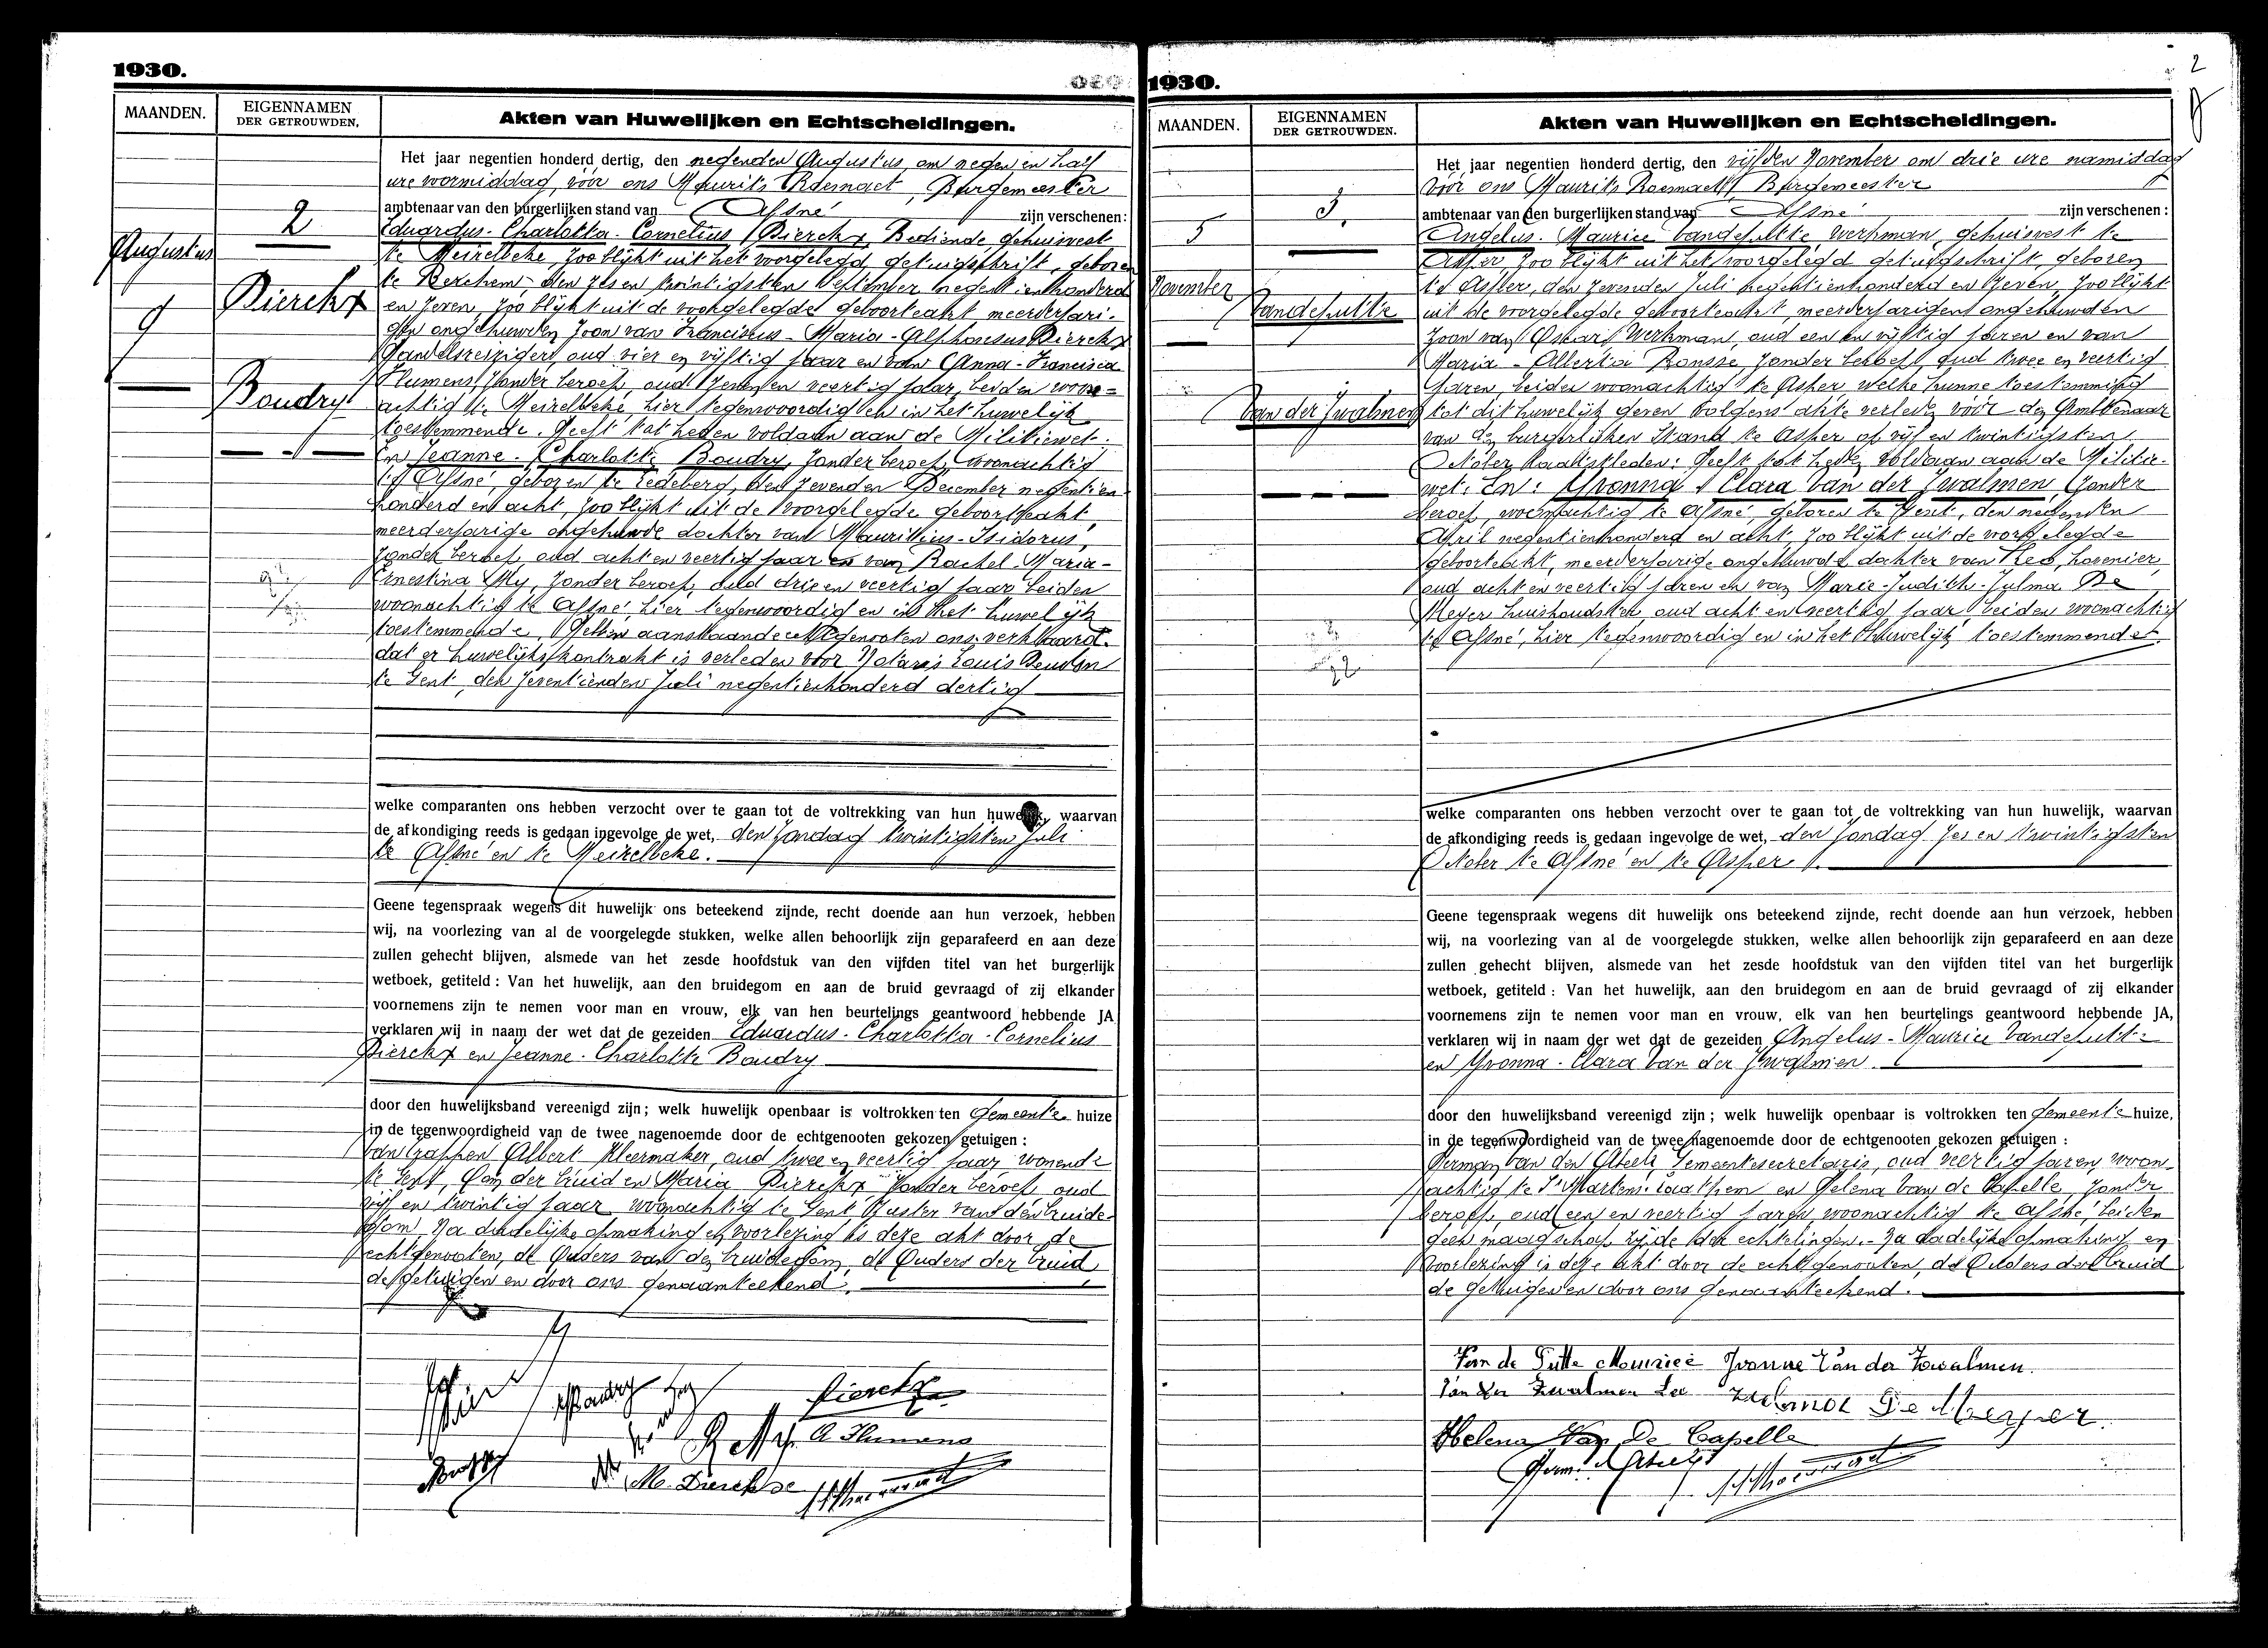 1930.
MAANDEN.
EIGENNAMEN
DER GETROUWDEN.
Akten van Huwelijken en Echtscheidingen.
Augustus
9
2
Dierckx
Boudry
Het jaar negentien honderd dertig, den negenden Augustus, om negen en half
ure voormiddag, vóór ons Maurits Roemaet, Burgemeester
ambtenaar van den burgerlijken stand van Afsné zijn verschenen:
Eduardus-Charlotta-Cornelius Dierckx, Bediende gehuisvest
te Meirelbeke, zoo blijkt uit het voorgelegd getuigschrift, geboren
te Berchem den zes en twintigsten September negentienhonderd
en zeven, zoo blijkt uit de voorgelegde geboorteakt meerderjari-
gen ongehuwden zoon van Franciscus-Maria-Alphonsus Dierckx
Handelsreiziger, oud vier en vijftig jaar en van Anna-Francisca
Humens, zonder beroep, oud zeven en veertig jaar, beiden woon-
achtig te Meirelbeke, hier tegenwoordig en in het huwelijk
toestemmende. Heeft tot heden voldaan aan de Militiewet.
En Jeanne-Charlotte Boudry, zonder beroep, woonachtig
te Afsné, geboren te Ledeberg, den zevenden December negentien
honderd en acht, zoo blijkt uit de voorgelegde geboorteakt,
meerderjarige ongehuwde dochter van Mauritius-Isidorus,
zonder beroep, oud acht en veertig jaar en van Rachel-Maria-
Ernestina My, zonder beroep, oud drie en veertig jaar beiden
woonachtig te Afsné hier tegenwoordig en in het huwelijk
toestemmende. Hebben aanstaande echtgenooten ons verklaard
dat er huwelijkskontrakt is verleden voor Notaris Louis
te Gent, den zeventienden Juli negentienhonderd dertig
welke comparanten ons hebben verzocht over te gaan tot de voltrekking van hun huwelijk, waarvan
de afkondiging reeds is gedaan ingevolge de wet, den zondag twintigsten Juli
te Afsné en te Meirelbeke.
Geene tegenspraak wegens dit huwelijk ons beteekend zijnde, recht doende aan hun verzoek, hebben
wij, na voorlezing van al de voorgelegde stukken, welke allen behoorlijk zijn geparafeerd en aan deze
zullen gehecht blijven, alsmede van het zesde hoofdstuk van den vijfden titel van het burgerlijk
wetboek, getiteld: Van het huwelijk, aan den bruidegom en aan de bruid gevraagd of zij elkander
voornemens zijn te nemen voor man en vrouw, elk van hen beurtelings geantwoord hebbende JA
verklaren wij in naam der wet dat de gezeiden Eduardus-Charlotta-Cornelius
Dierckx en Jeanne-Charlotte Boudry
door den huwelijksband vereenigd zijn; welk huwelijk openbaar is voltrokken ten Gemeente huize
in de tegenwoordigheid van de twee nagenoemde door de echtgenooten gekozen getuigen:
Albert Kleermaker, oud twee en veertig jaar wonende
te Gent, der bruid en Maria Dierckx zonder beroep oud
vijf en twintig jaar woonachtig te Gent Zuster van den bruide-
gom. Na dadelijke opmaking en voorlezing is deze akt door de
echtgenooten, de Ouders van den bruidegom, de Ouders der bruid
de getuigen en door ons genaamteekend.
Dierckx
A. Humens
M. Dierckx
1930.
2
MAANDEN.
EIGENNAMEN
DER GETROUWDEN.
Akten van Huwelijken en Echtscheidingen.
5
November
3.
Vandeputte
Van der Zwalmen
Het jaar negentien honderd dertig, den vijfden November om drie ure namiddag
vóór ons Maurits Roemaet, Burgemeester
ambtenaar van den burgerlijken stand van Afsné zijn verschenen:
Angelus-Maurice Vandeputte werkman, gehuisvest te
Asper zoo blijkt uit het voorgelegd getuigschrift, geboren
te Asper, den zevenden Juli negentienhonderd en zeven, zoo blijkt
uit de voorgelegde geboorteakt, meerderjarigen ongehuwden
zoon van Oskar, Werkman, oud een en vijftig jaren en van
Maria-Albertia Ronsse, zonder beroep, oud twee en veertig
jaren, beiden woonachtig te Asper welke hunne toestemming
tot dit huwelijk geven volgens akte verleden vóór den Ambtenaar
van den burgerlijken Stand te Asper op vijf en twintigsten
October laatstleden: Heeft tot heden voldaan aan de Militie-
wet. En: Yvonna Clara Van der Zwalmen, zonder
beroep, woonachtig te Afsné, geboren te Gent, den negenden
April negentienhonderd en acht, zoo blijkt uit de voorgelegde
geboorteakt, meerderjarige ongehuwde dochter van Leo, hovenier,
oud acht en veertig jaren en van Marie-Judith-Zulma De
Meyer huishoudster, oud acht en veertig jaar beiden woonachtig
te Afsné, hier tegenwoordig en in het huwelijk toestemmende.
welke comparanten ons hebben verzocht over te gaan tot de voltrekking van hun huwelijk, waarvan
de afkondiging reeds is gedaan ingevolge de wet, den zondag zes en twintigsten
October te Afsné en te Asper.
Geene tegenspraak wegens dit huwelijk ons beteekend zijnde, recht doende aan hun verzoek, hebben
wij, na voorlezing van al de voorgelegde stukken, welke allen behoorlijk zijn geparafeerd en aan deze
zullen gehecht blijven, alsmede van het zesde hoofdstuk van den vijfden titel van het burgerlijk
wetboek, getiteld: Van het huwelijk, aan den bruidegom en aan de bruid gevraagd of zij elkander
voornemens zijn te nemen voor man en vrouw, elk van hen beurtelings geantwoord hebbende JA,
verklaren wij in naam der wet dat de gezeiden Angelus-Maurice Vandeputte
en Yvonna-Clara Van der Zwalmen.
door den huwelijksband vereenigd zijn; welk huwelijk openbaar is voltrokken ten Gemeente huize,
in de tegenwoordigheid van de twee nagenoemde door de echtgenooten gekozen getuigen:
Herman Van den Abeele, Gemeentesecretaris, oud veertig jaren, woon-
achtig te St Martens-Laathem en Helena Van de Capelle, zonder
beroep, oud een en veertig jaren, woonachtig te Afsné, beiden
geen maagschap zijnde der echtelingen. Na dadelijke opmaking en
voorlezing is deze akt door de echtgenooten, de Ouders der bruid
de getuigen en door ons genaamteekend.
Van de Putte Maurice Yvonne Van der Zwalmen.
Van der Zwalmen Leo Zulma De Meyer.
Helena Van De Capelle